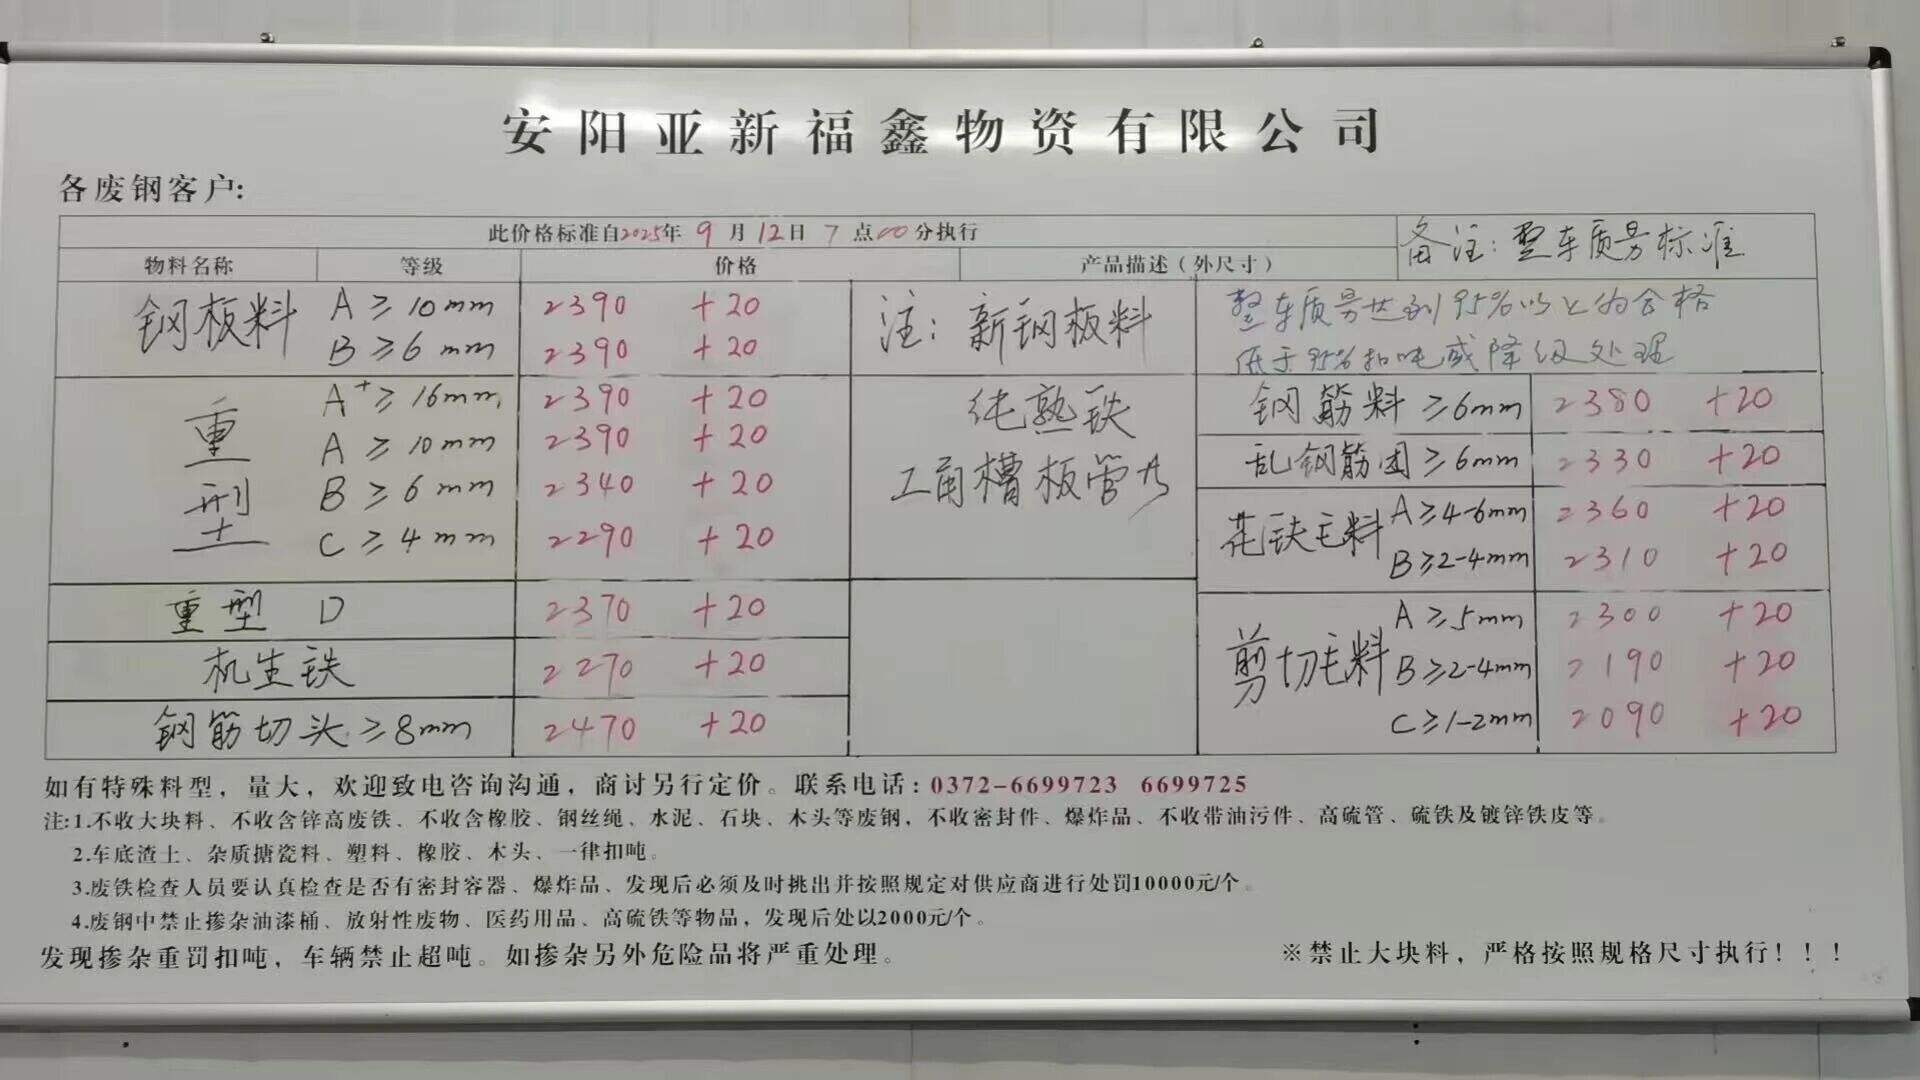 安阳亚新福鑫物资有限公司
各废钢客户:
此价格标准自2025年 9 月 12 日 7 点 00 分执行
备注: 整车质量标准
物料名称 等级 价格 产品描述（外尺寸）
钢板料 A ≥ 10mm 2390 +20
B ≥ 6 mm 2390 +20
注: 新钢板料
整车质量达到95%以上为合格
低于95%扣吨或降级处理
重型 A+ ≥ 16mm 2390 +20
A ≥ 10mm 2390 +20
B ≥ 6 mm 2340 +20
C ≥ 4 mm 2290 +20
纯熟铁
工角槽板管
重型 D 2370 +20
机生铁 2270 +20
钢筋切头 ≥8mm 2470 +20
钢筋料 ≥6mm 2380 +20
乱钢筋团 ≥6mm 2330 +20
花铁毛料 A≥4-6mm 2360 +20
B≥2-4mm 2310 +20
剪切毛料 A ≥5mm 2300 +20
B ≥2-4mm 2190 +20
C ≥1-2mm 2090 +20
如有特殊料型，量大，欢迎致电咨询沟通，商讨另行定价。联系电话: 0372-6699723 6699725
注:1.不收大块料、不收含锌高废铁、不收含橡胶、钢丝绳、水泥、石块、木头等废钢，不收密封件、爆炸品、不收带油污件、高硫管、硫铁及镀锌铁皮等。
2.车底渣土、杂质搪瓷料、塑料、橡胶、木头、一律扣吨。
3.废铁检查人员要认真检查是否有密封容器、爆炸品、发现后必须及时挑出并按照规定对供应商进行处罚10000元/个。
4.废钢中禁止掺杂油漆桶、放射性废物、医药用品、高硫铁等物品，发现后处以2000元/个。
发现掺杂重罚扣吨，车辆禁止超吨。如掺杂另外危险品将严重处理。 ※禁止大块料，严格按照规格尺寸执行！！！